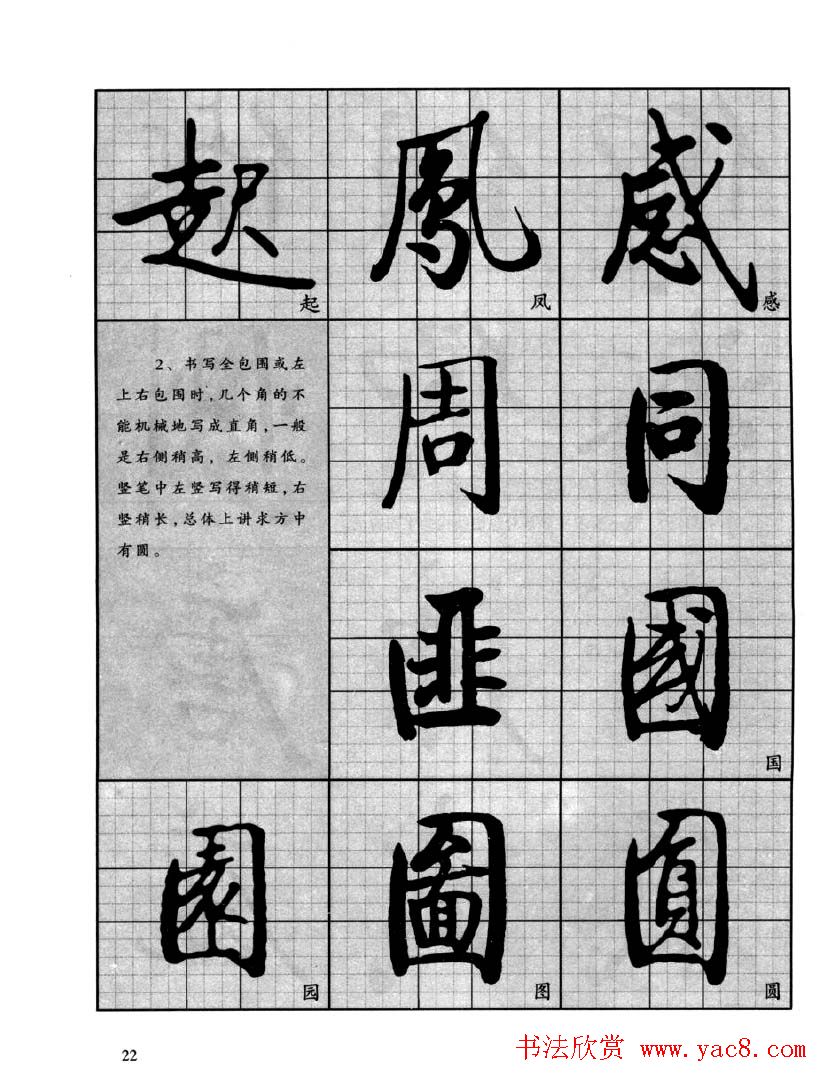 起 鳳 感
起 凤 感
2、书写全包围或左
上右包围时，几个角的不
能机械地写成直角，一般
是右侧稍高，左侧稍低。
竖笔中左竖写得稍短，右
竖稍长，总体上讲求方中
有圆。
周 同
匪 國
国
園 圖 圓
园 图 圆
22
书法欣赏 www.yac8.com